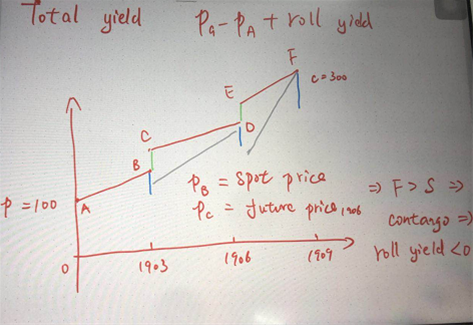 Total yield Pa - PA + roll yield
F
c=300
E
C
D
B
P = 100
A
PB = spot price
Pc = future price, 1906
⇒ F > S ⇒
contango ⇒
roll yield < 0
0
1903 1906 1909